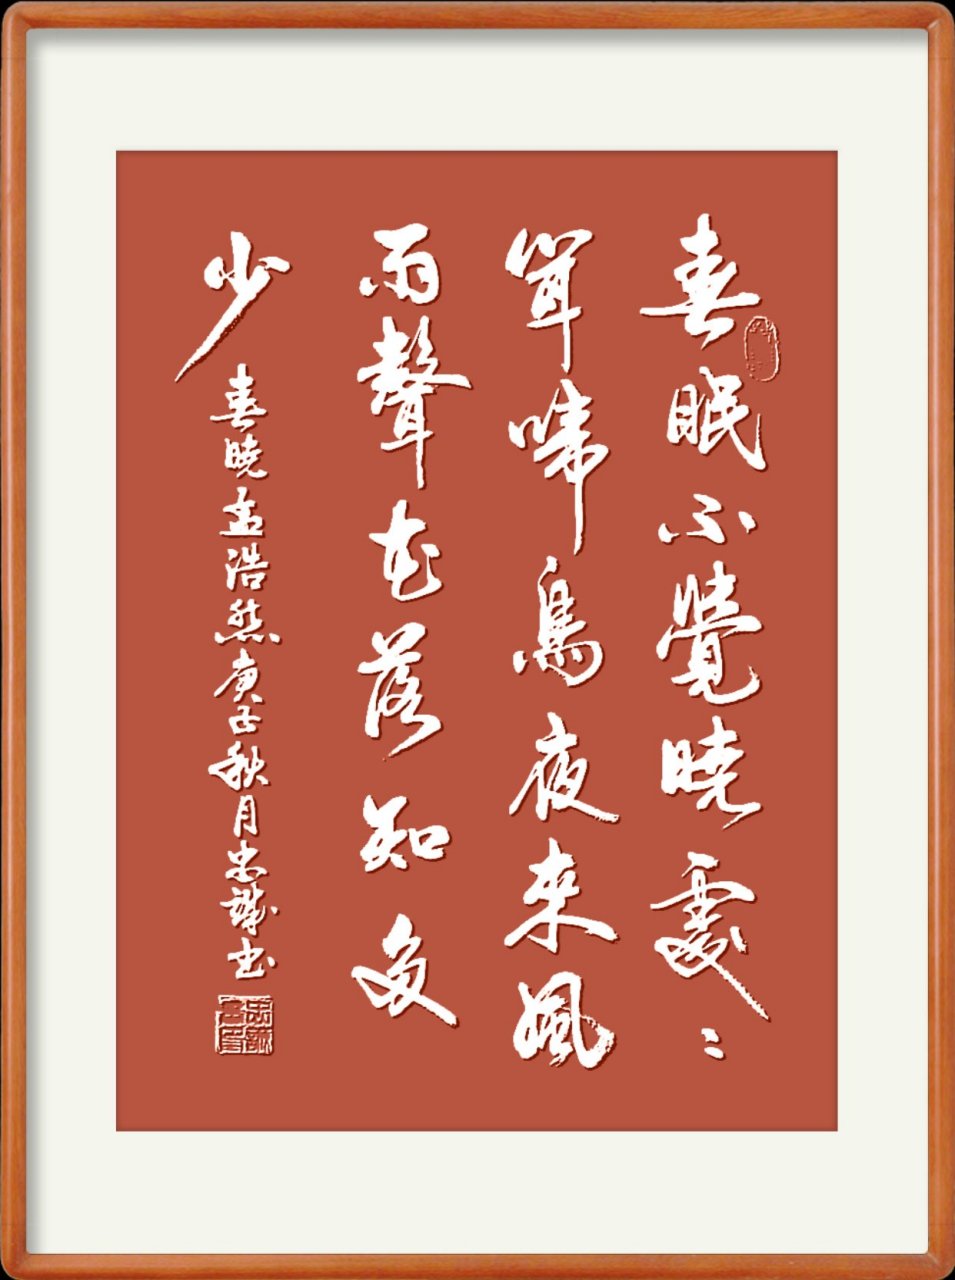 春眠不覺曉處〻
聞啼鳥夜來風
雨聲花落知多
少
春曉孟浩然庚子秋月忠誠書